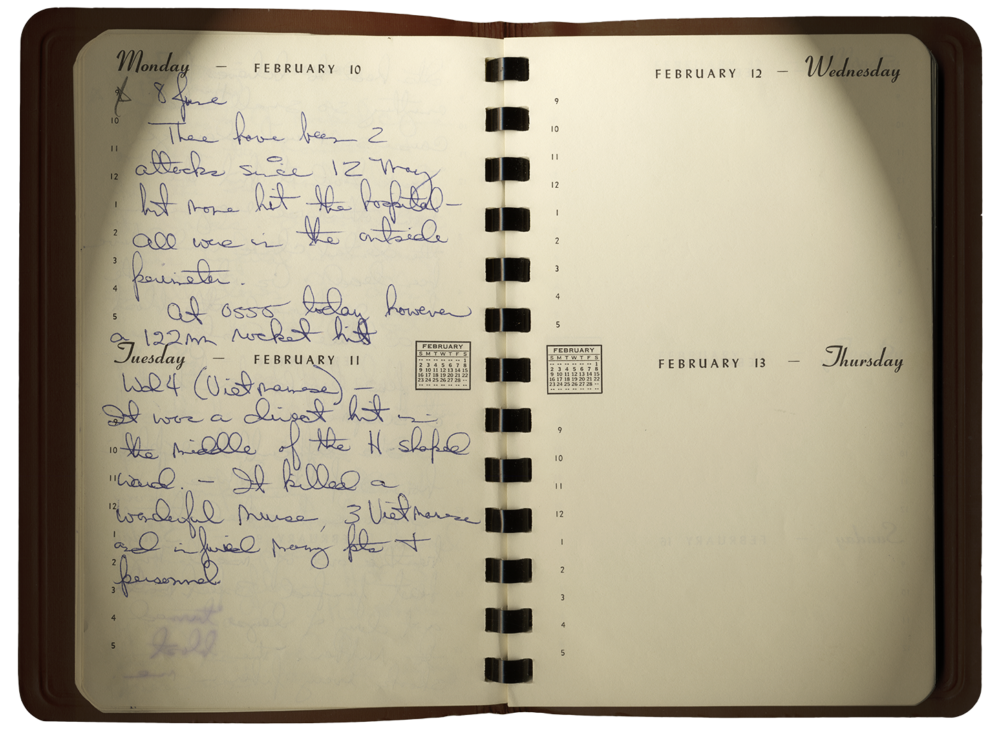 Monday — FEBRUARY 10
8 June
9
10
There have been 2
11
attacks since 12 May
12
but none hit the hospital –
1
all were in the outside
2
perimeter.
3
4
At 0555 today however
5
a 122mm rocket hit
Tuesday — FEBRUARY 11
FEBRUARY
S M T W T F S
1
2 3 4 5 6 7 8
9 10 11 12 13 14 15
16 17 18 19 20 21 22
23 24 25 26 27 28
Wd 4 (Vietnamese) –
It was a direct hit in
the middle of the H shaped
10
ward. – It killed a
11
wonderful nurse, 3 Vietnamese
12
and injured many pts +
1
2
personnel
3
4
5
FEBRUARY 12 — Wednesday
9
10
11
12
1
2
3
4
5
FEBRUARY
S M T W T F S
1
2 3 4 5 6 7 8
9 10 11 12 13 14 15
16 17 18 19 20 21 22
23 24 25 26 27 28
FEBRUARY 13 — Thursday
9
10
11
12
1
2
3
4
5